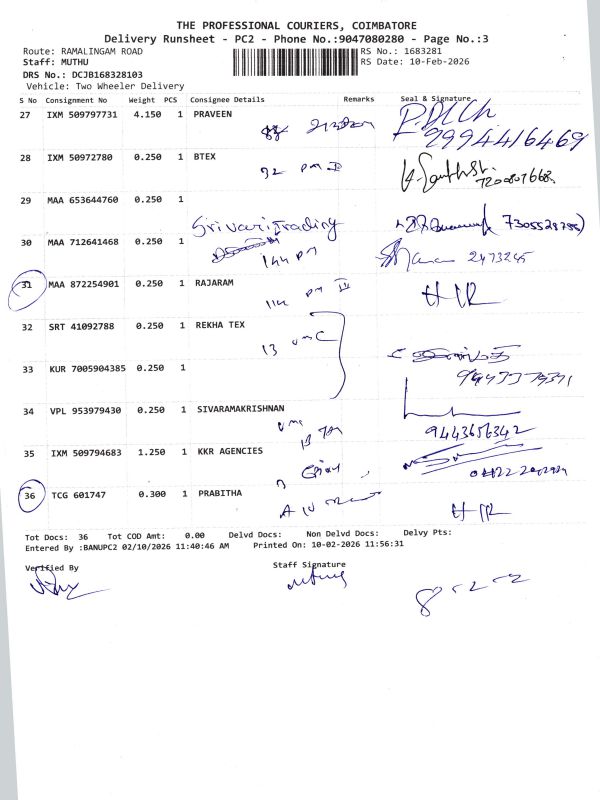 THE PROFESSIONAL COURIERS, COIMBATORE
Delivery Runsheet - PC2 - Phone No.:9047080280 - Page No.:3
Route: RAMALINGAM ROAD RS No.: 1683281
Staff: MUTHU RS Date: 10-Feb-2026
DRS No.: DCJB168328103
Vehicle: Two Wheeler Delivery
S No Consignment No Weight PCS Consignee Details Remarks Seal & Signature
27 IXM 509797731 4.150 1 PRAVEEN
2994416469
28 IXM 50972780 0.250 1 BTEX
32 PM
29 MAA 653644760 0.250 1
Srivari Trading
30 MAA 712641468 0.250 1
144 PM
31 MAA 872254901 0.250 1 RAJARAM
114 PM
32 SRT 41092788 0.250 1 REKHA TEX
13 UMC
33 KUR 7005904385 0.250 1
34 VPL 953979430 0.250 1 SIVARAMAKRISHNAN
9443656342
35 IXM 509794683 1.250 1 KKR AGENCIES
36 TCG 601747 0.300 1 PRABITHA
Tot Docs: 36 Tot COD Amt: 0.00 Delvd Docs: Non Delvd Docs: Delvy Pts:
Entered By :BANUPC2 02/10/2026 11:40:46 AM Printed On: 10-02-2026 11:56:31
Verified By Staff Signature